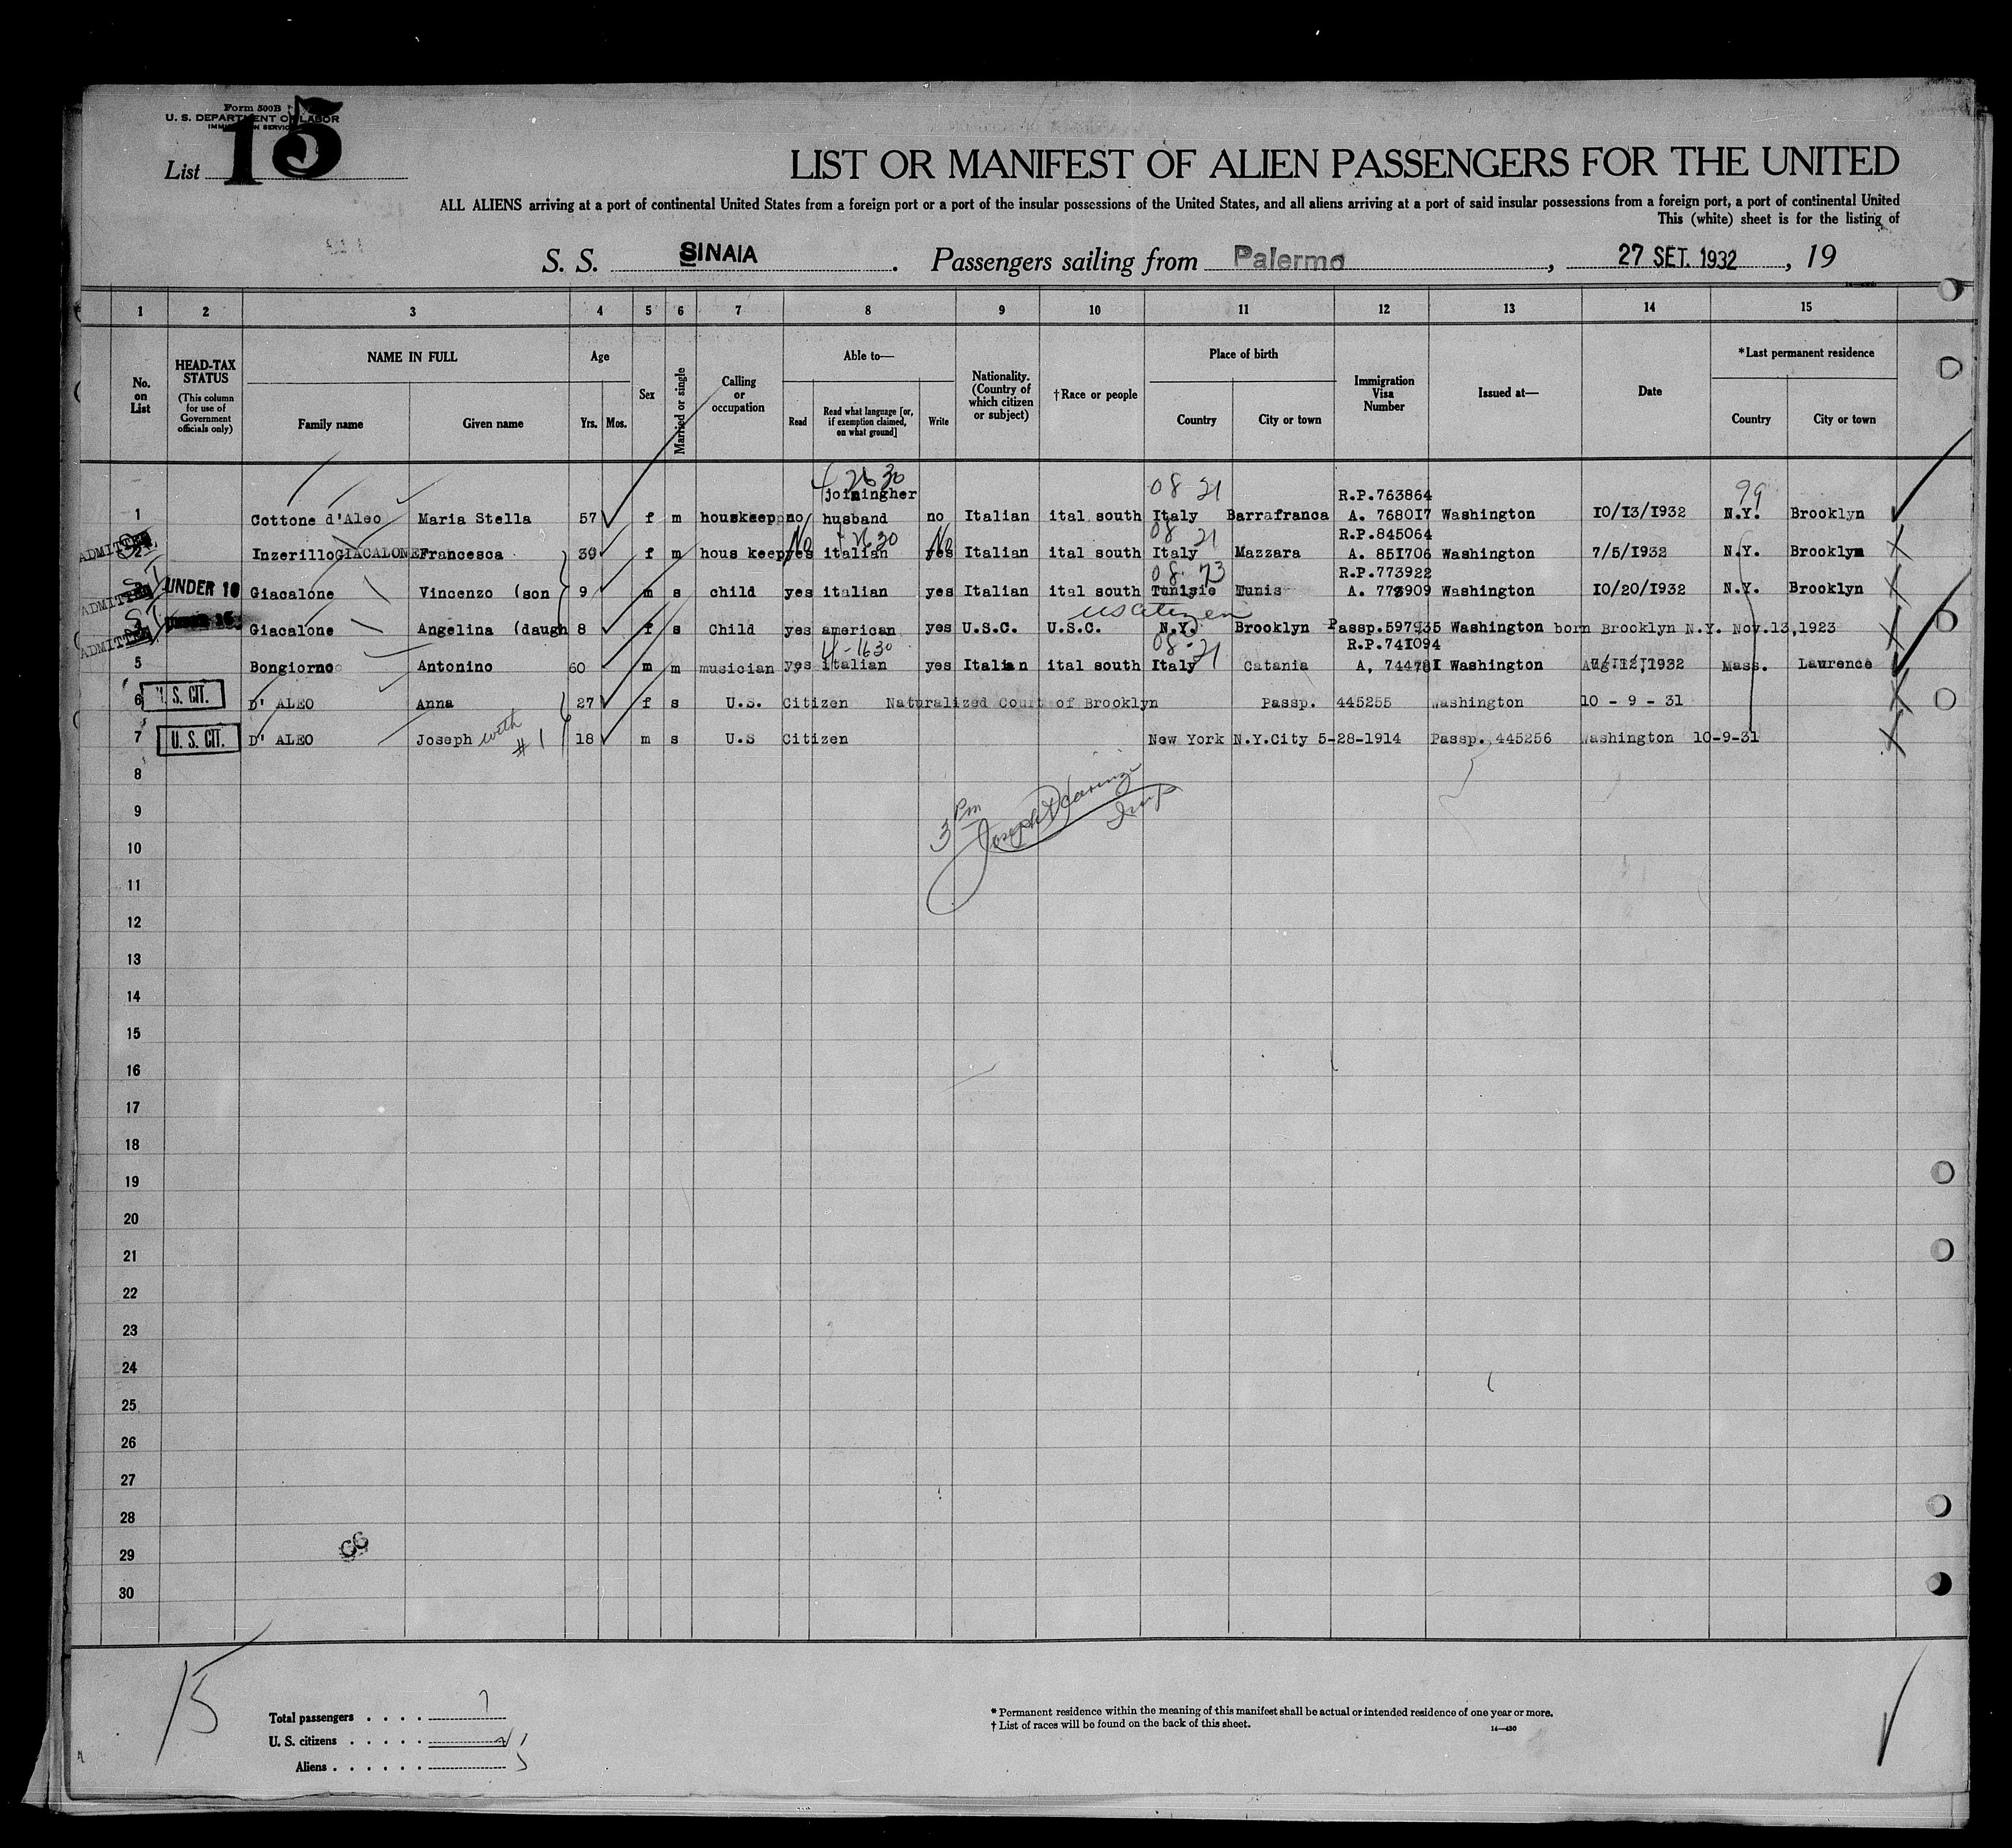 Form 500B
U. S. DEPARTMENT OF LABOR
IMMIGRATION SERVICE
List 15
LIST OR MANIFEST OF ALIEN PASSENGERS FOR THE UNITED
ALL ALIENS arriving at a port of continental United States from a foreign port or a port of the insular possessions of the United States, and all aliens arriving at a port of said insular possessions from a foreign port, a port of continental United
This (white) sheet is for the listing of
S. S. SINAIA . Passengers sailing from Palermo , 27 SET. 1932 , 19
1 2 3 4 5 6 7 8 9 10 11 12 13 14 15
No. on List
HEAD-TAX STATUS
(This column for use of Government officials only)
NAME IN FULL
Family name Given name
Age
Yrs. Mos.
Sex
Married or single
Calling or occupation
Able to—
Read
Read what language [or, if exemption claimed, on what ground]
Write
Nationality. (Country of which citizen or subject)
†Race or people
Place of birth
Country City or town
Immigration Visa Number
Issued at—
Date
*Last permanent residence
Country City or town
joiningher 08 21 R.P.763864 99
1 Cottone d'Aleo Maria Stella 57 f m houskeep no husband no Italian ital south Italy Barrafranca A. 768017 Washington 10/13/1932 N.Y. Brooklyn
No No 08 21 R.P.845064
ADMITTED 2 Inzerillo GIACALONE Francesca 39 f m hous keep yes italian yes Italian ital south Italy Mazzara A. 851706 Washington 7/5/1932 N.Y. Brooklyn
08 73 R.P.773922
ADMITTED 3 UNDER 16 Giacalone Vincenzo (son 9 m s child yes italian yes Italian ital south Tunisie Tunis A. 773909 Washington 10/20/1932 N.Y. Brooklyn
US Citizen
ADMITTED 4 Giacalone Angelina (daugh 8 f s Child yes american yes U.S.C. U.S.C. N.Y. Brooklyn Passp.597935 Washington born Brooklyn N.Y. Nov.13,1923
08-21 R.P.741094
5 Bongiorno Antonino 60 m m musician yes italian yes Italian ital south Italy Catania A, 744781 Washington 1932 Mass. Laurence
6 U. S. CIT. D' ALEO Anna 27 f s U.S. Citizen Naturalized Court of Brooklyn Passp. 445255 Washington 10 - 9 - 31
7 U. S. CIT. D' ALEO Joseph with #1 18 m s U.S Citizen New York N.Y.City 5-28-1914 Passp. 445256 Washington 10-9-31
8
3 Pm Joseph
9
10
11
12
13
14
15
16
17
18
19
20
21
22
23
24
25
26
27
28
29
30
15
Total passengers . . . . 7
U. S. citizens . . . . .
Aliens . . . . . .
* Permanent residence within the meaning of this manifest shall be actual or intended residence of one year or more.
† List of races will be found on the back of this sheet.
14—430